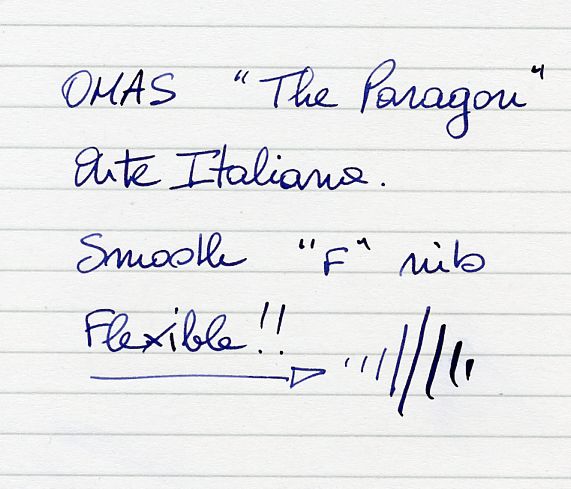 OMAS "The Paragon"
Arte Italiana.
Smooth "F" nib
Flexible!!